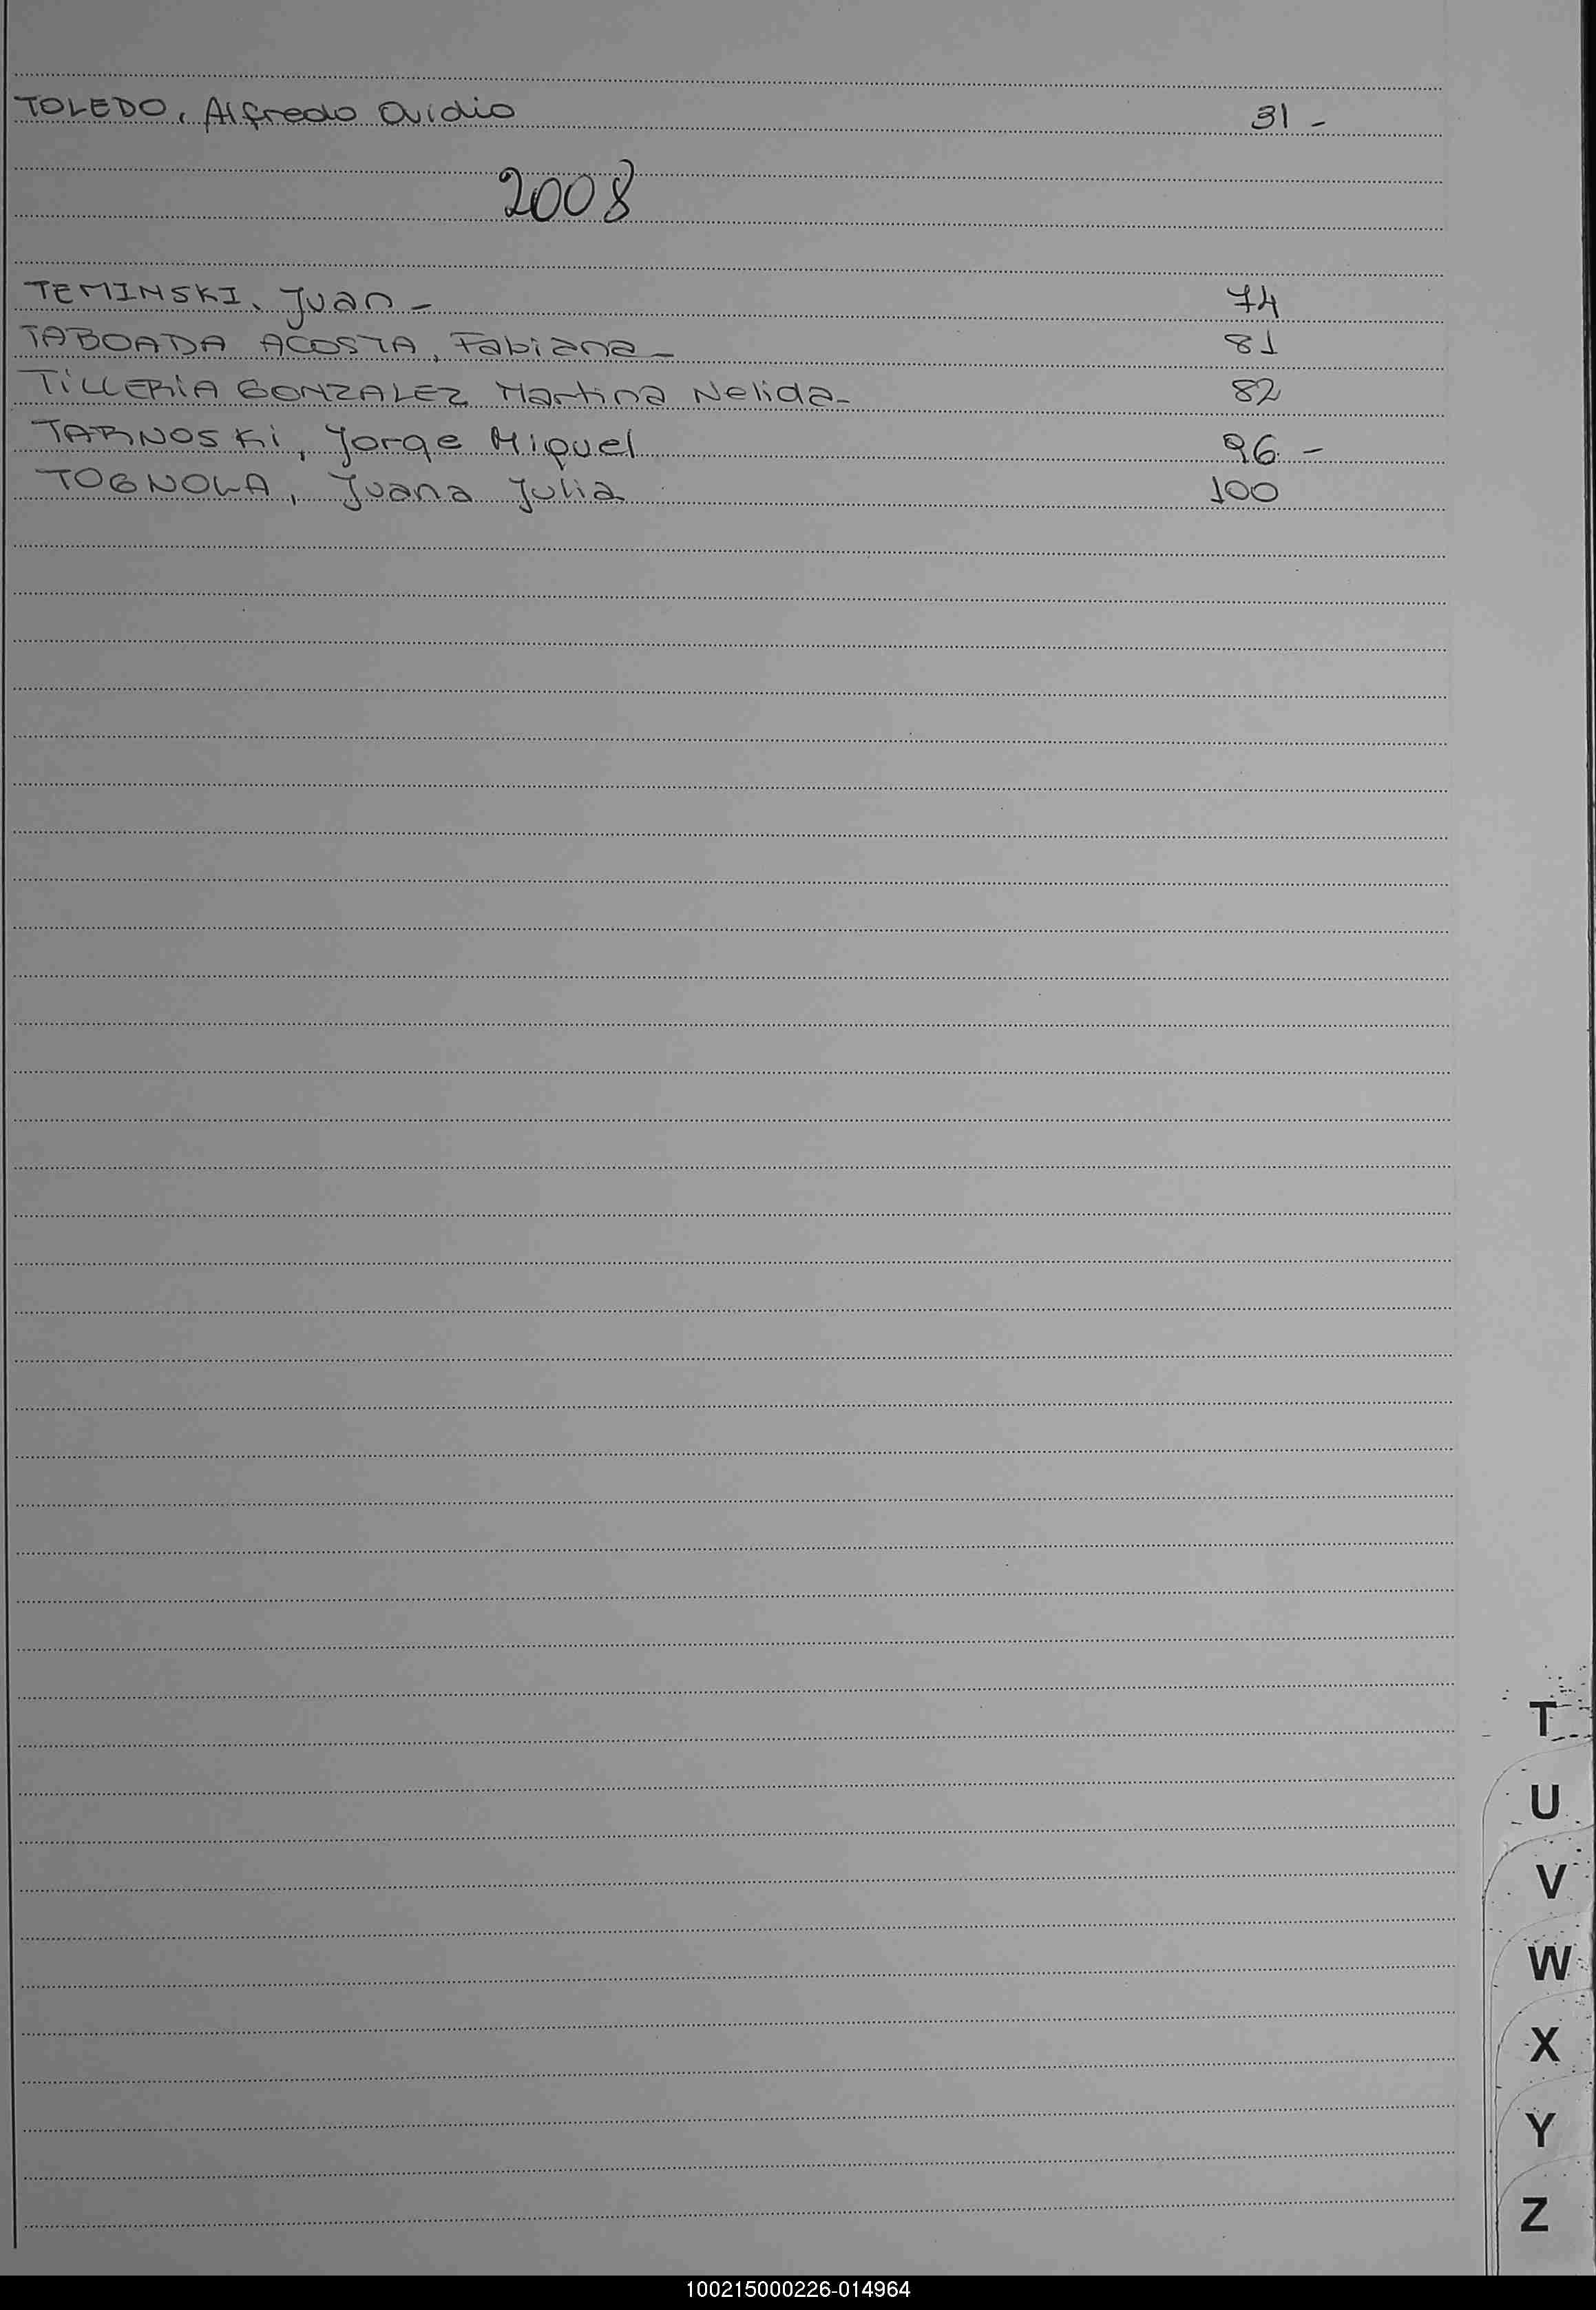 TOLEDO, Alfredo Ovidio 31 -
2008
TEMINSKI, Juan - 74
TABOADA ACOSTA, Fabiana - 81
TiLLERiA GONZALEZ Martina Nelida - 82
TARNOSKi, Jorge Miguel 96 -
TOGNOLA, Juana Julia 100
T
U
V
W
X
Y
Z
100215000226-014964